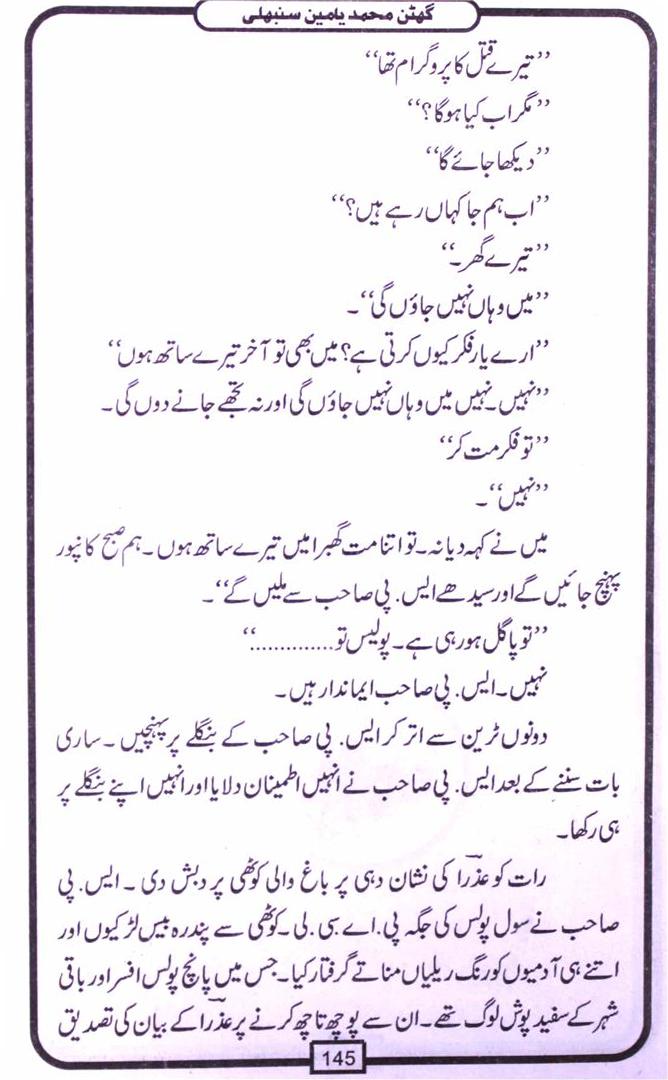 گھٹن محمد یامین سنبھلی
’’تیرے قتل کا پروگرام تھا‘‘
’’مگر اب کیا ہوگا؟‘‘
’’دیکھا جائے گا‘‘
’’اب ہم جا کہاں رہے ہیں؟‘‘
’’تیرے گھر۔‘‘
’’میں وہاں نہیں جاؤں گی‘‘۔
’’ارے یار فکر کیوں کرتی ہے؟ میں بھی تو آخر تیرے ساتھ ہوں‘‘
’’نہیں۔نہیں میں وہاں نہیں جاؤں گی اور نہ تجھے جانے دوں گی۔
’’تو فکر مت کر‘‘
’’نہیں‘‘۔
میں نے کہہ دیا نہ۔تو اتنا مت گھبرا میں تیرے ساتھ ہوں۔ہم صبح کانپور
پہنچ جائیں گے اور سیدھے ایس. پی صاحب سے ملیں گے‘‘۔
’’تو پاگل ہو رہی ہے۔ پولیس تو..............‘‘
نہیں۔ایس. پی صاحب ایماندار ہیں۔
دونوں ٹرین سے اتر کر ایس. پی صاحب کے بنگلے پر پہنچیں ۔ ساری
بات سننے کے بعد ایس. پی صاحب نے انہیں اطمینان دلایا اور انہیں اپنے بنگلے پر
ہی رکھا۔
رات کو عذرؔا کی نشان دہی پر باغ والی کوٹھی پر دبش دی ۔ ایس. پی
صاحب نے سول پولس کی جگہ پی.اے.سی.لی۔کوٹھی سے پندرہ بیس لڑکیوں اور
اتنے ہی آدمیوں کو رنگ ریلیاں مناتے گرفتار کیا۔جس میں پانچ پولس افسر اور باقی
شہر کے سفید پوش لوگ تھے۔ان سے پوچھ تاچھ کرنے پر عذرؔا کے بیان کی تصدیق
145